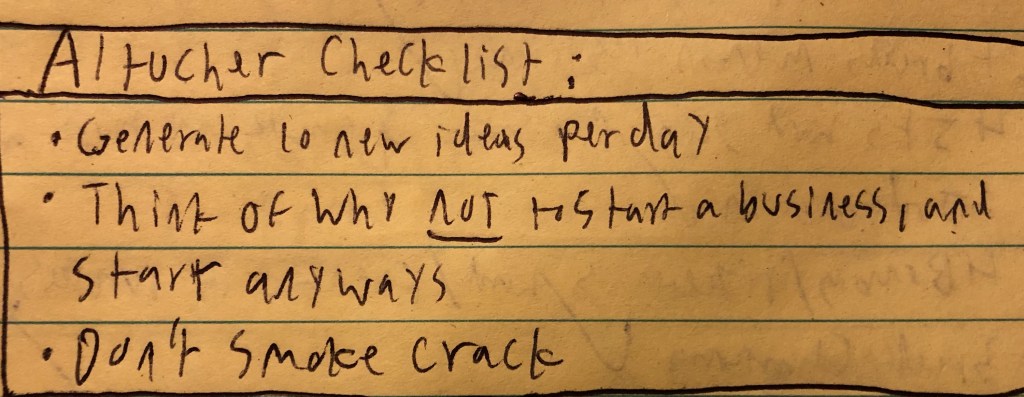 Altucher Checklist:
• Generate 10 new ideas per day
• Think of why NOT to start a business, and
start anyways
• Don't smoke crack